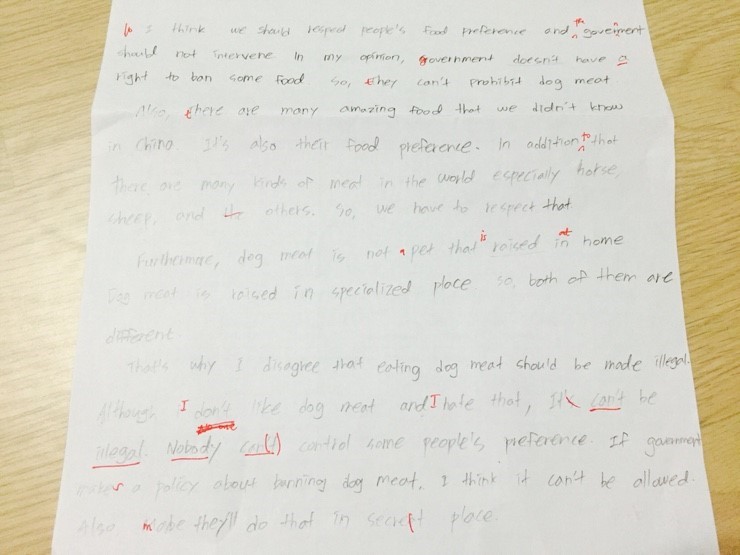 I think we should respect people's food preference and the goverment
should not intervene In my opinion, government doesn't have a
right to ban some food so, they can't prohibit dog meat
Also, there are many amazing food that we didn't know
in China. It's also their food preference. In addition to that
there are many kinds of meat in the world especially horse,
sheep, and others. So, we have to respect that
Furthermore, dog meat is not a pet that is raised in at home
Dog meat is raised in specialized place so, both of them are
different
That's why I disagree that eating dog meat should be made illegal.
Although I don't like dog meat and I hate that, It can't be
illegal. Nobody can(t) control some people's preference. If government
makes a policy about banning dog meat, I think it can't be allowed.
Also they'll do that in secret place.